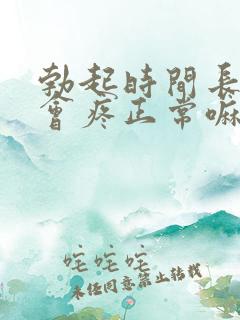 勃起時間長
會疼正常嘛
咤咤咤
未经同意禁止转载